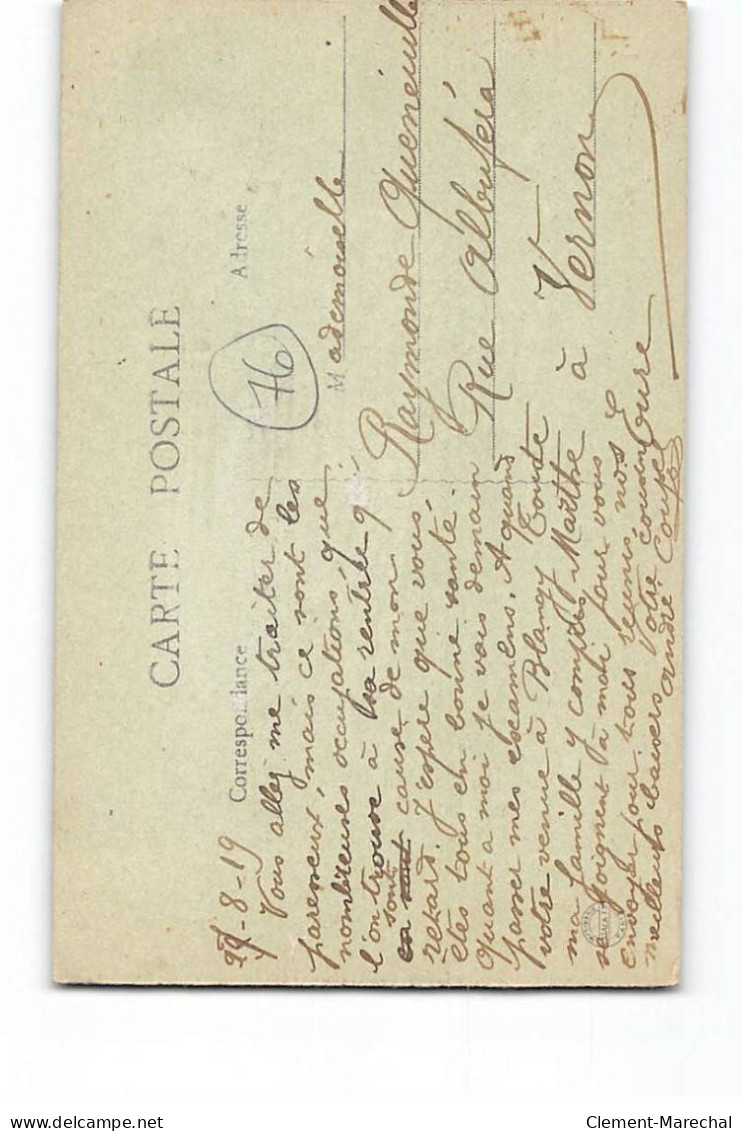 CARTE POSTALE
Correspondance
Adresse
76
-8-19
Vous allez me traiter de
paresseux, mais ce sont les
nombreuses occupations, que
l'on trouve à sa rentrée q
sont
en sont cause de mon
retard. J'espère que vous
êtes tous en bonne santé.
Quant a moi je vais demain
passer mes examens. A quand
votre venue à Blangy Toute
ma famille y compris Marthe
se joignent à moi pour vous
envoyer pour tous reunis, nos
meilleurs baisers Votre cousin
André
Mademoiselle
Raymonde Queneuille
Rue Albuféra
à Vernon
Eure
Clement-Marechal